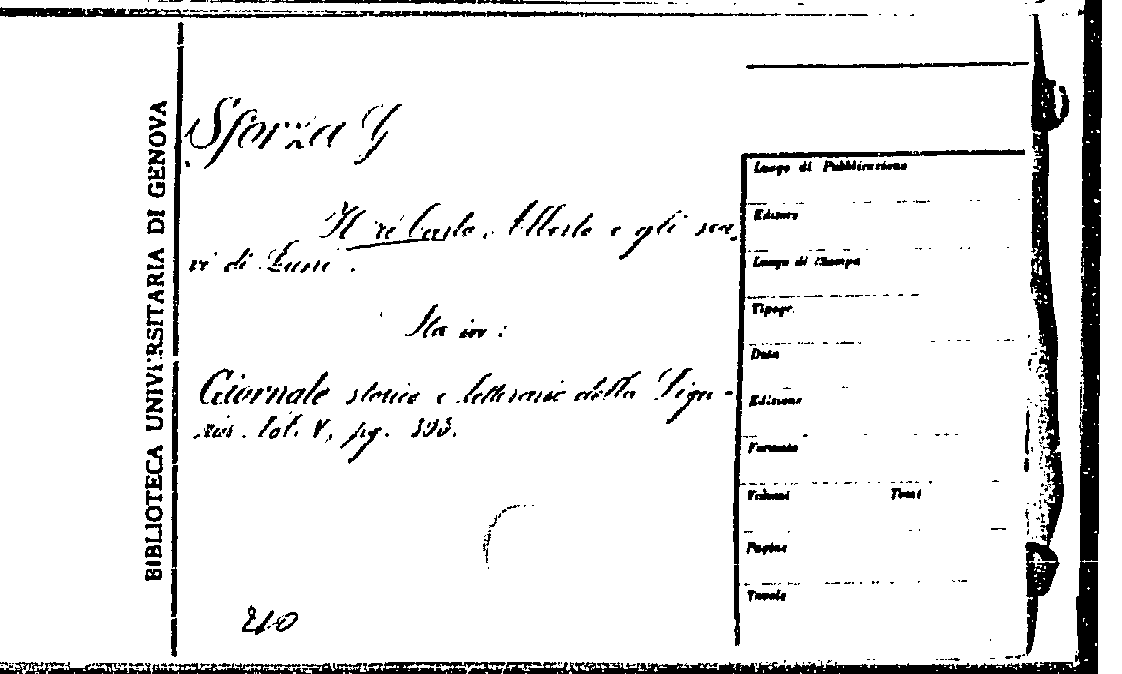 BIBLIOTECA UNIVERSITARIA DI GENOVA
Sforza G
Il ré Carlo Alberto e gli sca-
vi di Luni.
Sta in:
Giornale storico e letterario della Ligu-
ria. Vol. V, pg. 393.
210
Luogo di Pubblicazione
Editore
Luogo di Stampa
Tipogr.
Data
Edizione
Formato
Volumi Tomi
Pagine
Tavole